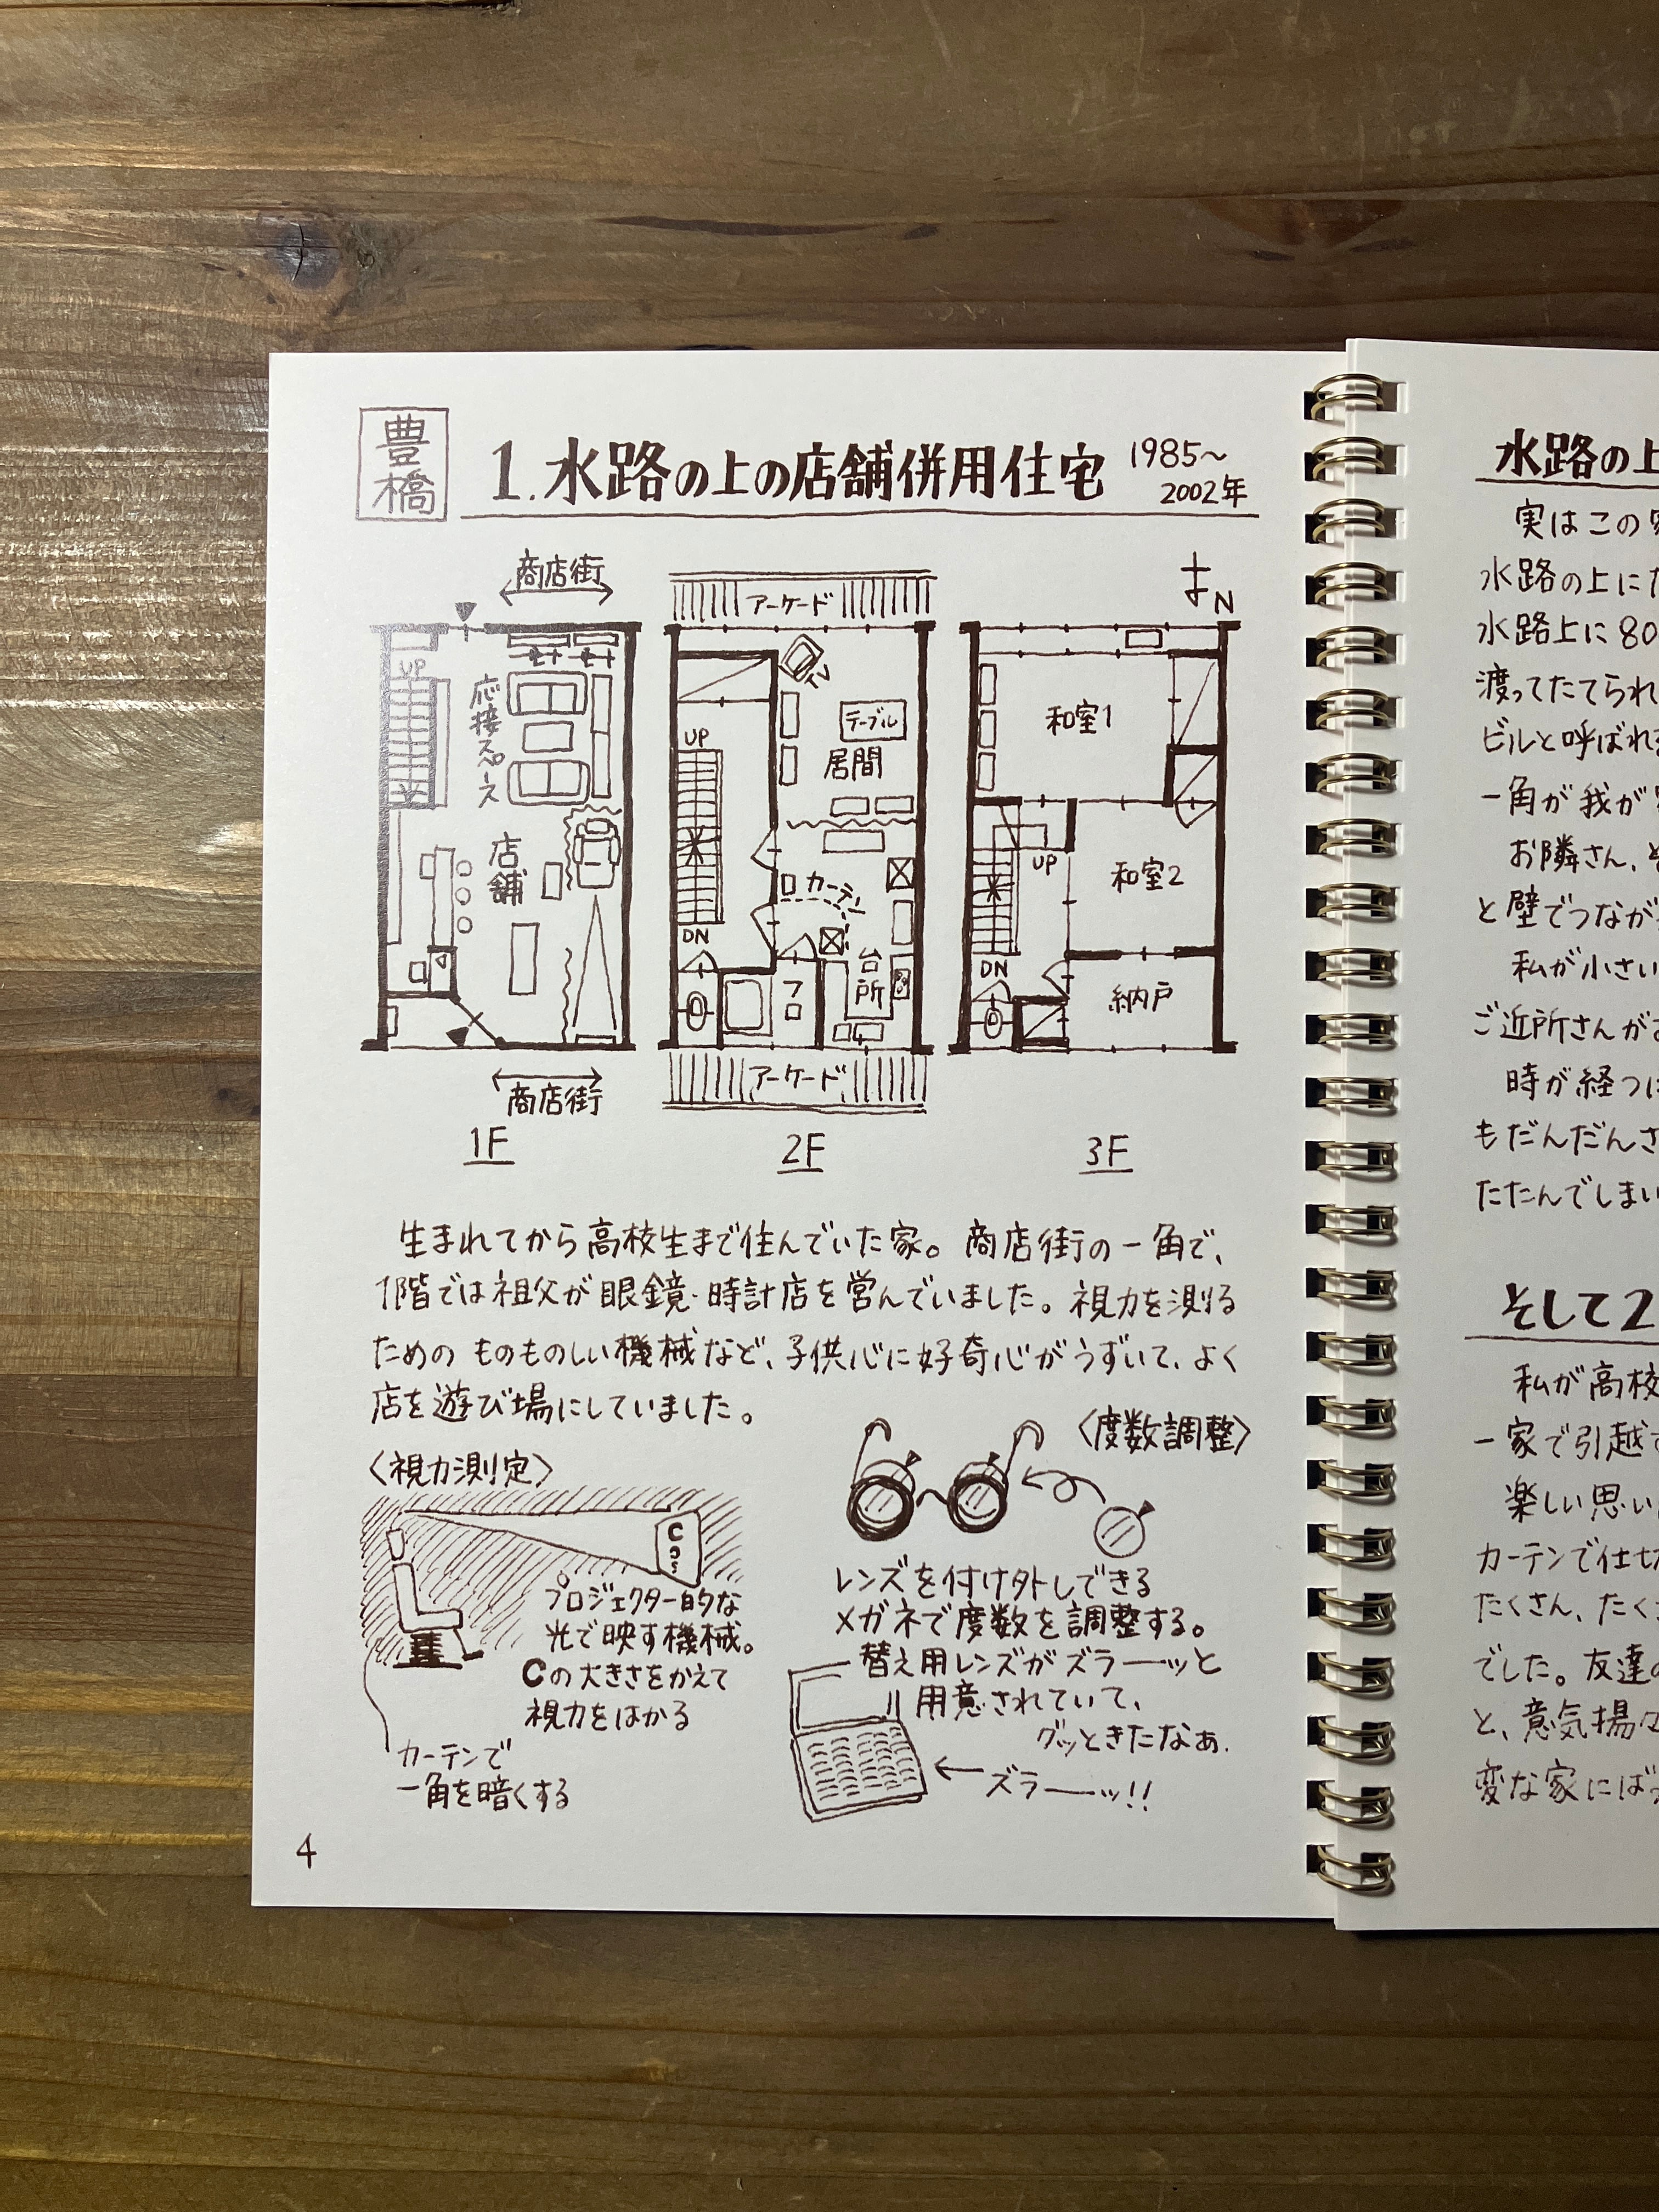 豊橋
1. 水路の上の店舗併用住宅
1985〜
2002年
商店街
UP
応接スペース
店舗
商店街
1F
アーケード
TV
テーブル
居間
UP
カーテン
DN
フロ
台所
アーケード
2F
N
和室1
UP
和室2
DN
納戸
3F
生まれてから高校生まで住んでいた家。商店街の一角で、
1階では祖父が眼鏡・時計店を営んでいました。視力を測る
ための ものものしい機械など、子供心に好奇心がうずいて、よく
店を遊び場にしていました。
〈視力測定〉
C
プロジェクター的な
光で映す機械。
Cの大きさをかえて
視力をはかる
カーテンで
一角を暗くする
〈度数調整〉
レンズを付け外しできる
メガネで度数を調整する。
替え用レンズがズラーーッと
用意されていて、
グッときたなぁ.
ズラーーッ!!
4
水路の上
実はこの
水路の上に
水路上に80
渡ってたてられ
ビルと呼ばれ
一角が我が
お隣さん、
と壁でつなが
私が小さい
ご近所さんが
時が経つに
もだんだん
たたんでしまい
そして2
私が高校
一家で引越
楽しい思い
カーテンで仕切
たくさん、たく
でした。友達
と、意気揚々
変な家にば